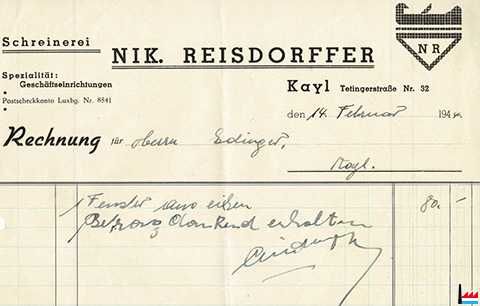 Schreinerei
NIK. REISDORFFER
NR
Spezialität:
Geschäftseinrichtungen
Postscheckkonto Luxbg. Nr. 8541
Kayl Tetingerstraße Nr. 32
den 14. Februar 1944.
Rechnung für Herrn Edinger,
Kayl.
1 Fenster aus eiben 80.-
Betrag dankend erhalten